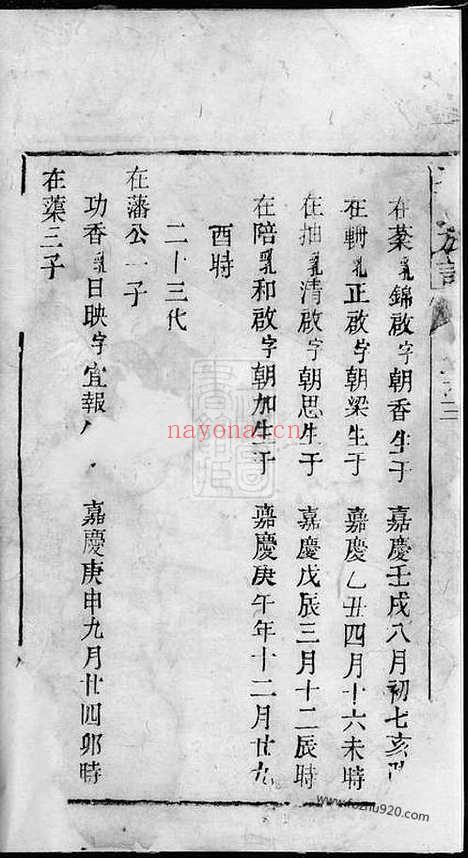 在棻乳錦啟字朝香生于 嘉慶壬戌八月初七亥時
在軵乳正啟字朝梁生于 嘉慶乙丑四月十六未時
在抽乳清啟字朝思生于 嘉慶戊辰三月十二辰時
在陪乳和啟字朝加生于 嘉慶庚午年十二月廿九
酉時
二十三代
在藩公一子
功香乳日映字宜報 嘉慶庚申九月廿四卯時
在蕖三子
nayona.cn
www.fozhu920.com